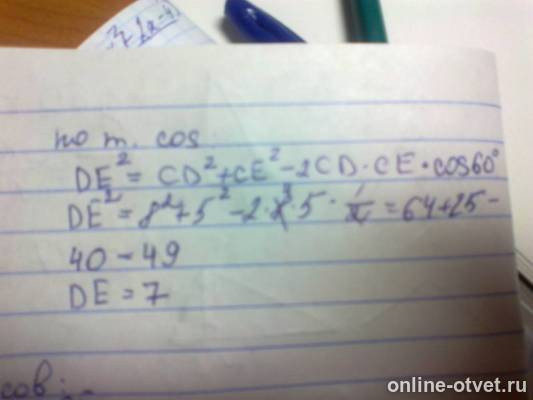 по т. cos
DE² = CD² + CE² - 2CD · CE · cos60°
DE² = 8² + 5² - 2 · 8 · 5 · = 64 + 25 -
40 = 49
DE = 7
сов
online-otvet.ru